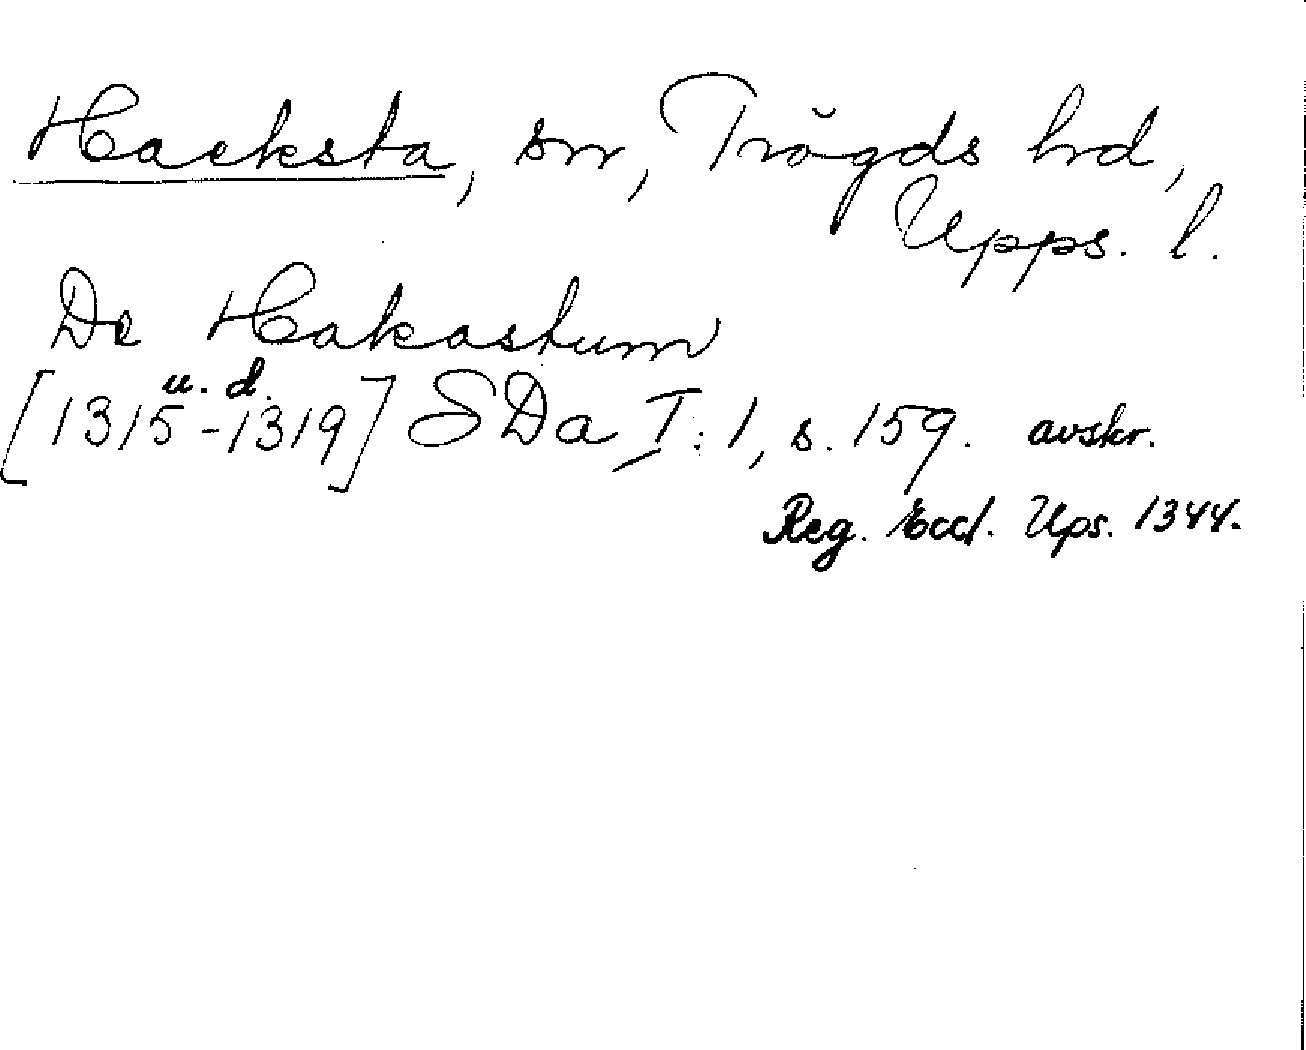 Hacksta, sn, Trögds hrd,
Upps. l.
De Hakastum
u. d.
[1315-1319] SDa I:1, s. 159. avskr.
Reg. Eccl. Ups. 1344.